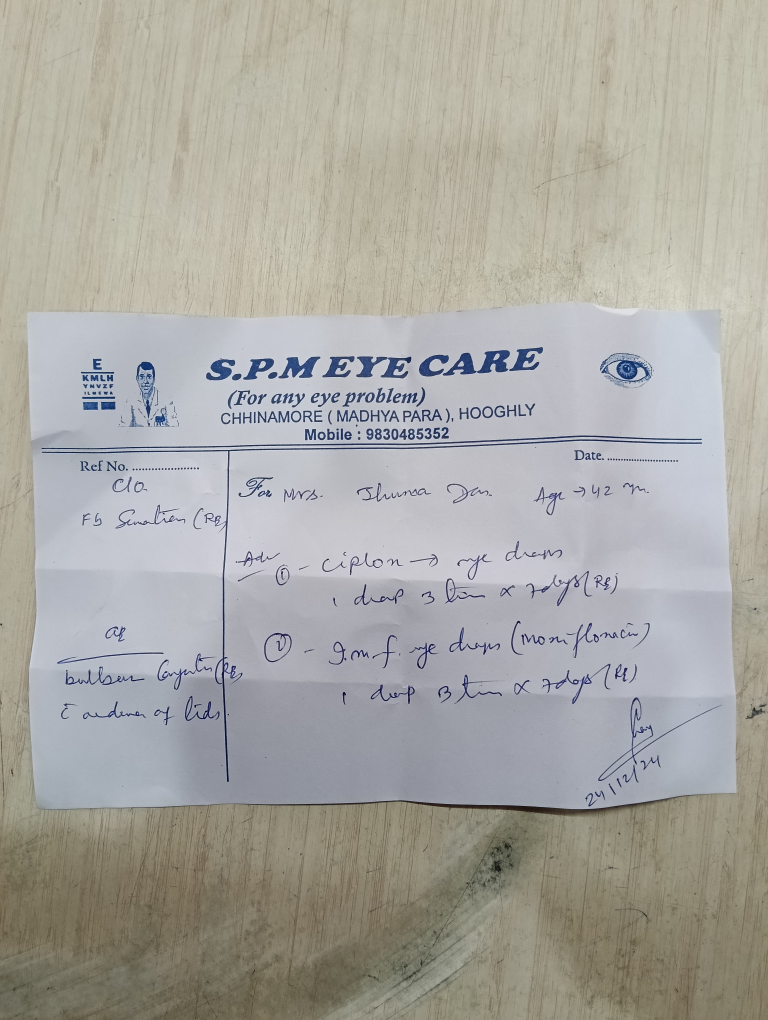 E
KMLH
YNVZF
ILHEWA
S.P.M EYE CARE
(For any eye problem)
CHHINAMORE ( MADHYA PARA ), HOOGHLY
Mobile : 9830485352
Ref No. ......................
Date. ........................
C/o
FB Sensation (RE)
For Mrs. Jhuma Das. Age → 42 yrs.
Adv
① - Ciplox → eye drops
1 drop 3 times x 7 days (RE)
O/E
bulbar Congestion (RE)
c̄ oedema of lids.
② - eye drops (Moxifloxacin)
1 drop 3 times x 7 days (RE)
24/12/24